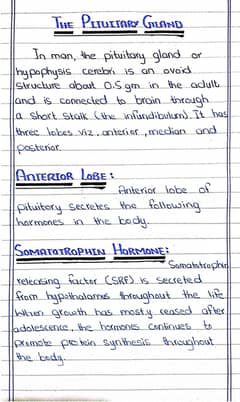 THE PITUITARY GLAND
In man, the pituitary gland or
hypophysis cerebri is an ovoid
structure about 0.5 gm in the adult
and is connected to brain through
a short stalk (the infundibulum). It has
three lobes viz. anterior, median and
posterior.
ANTERIOR LOBE:
Anterior lobe of
pituitary secretes the following
hormones in the body.
SOMATOTROPHIN HORMONE:
Somatotrophin
releasing factor (SRF) is secreted
from hypothalamus throughout the life
when growth has mostly ceased after
adolescence, the hormones continues to
promote protein synthesis throughout
the body.